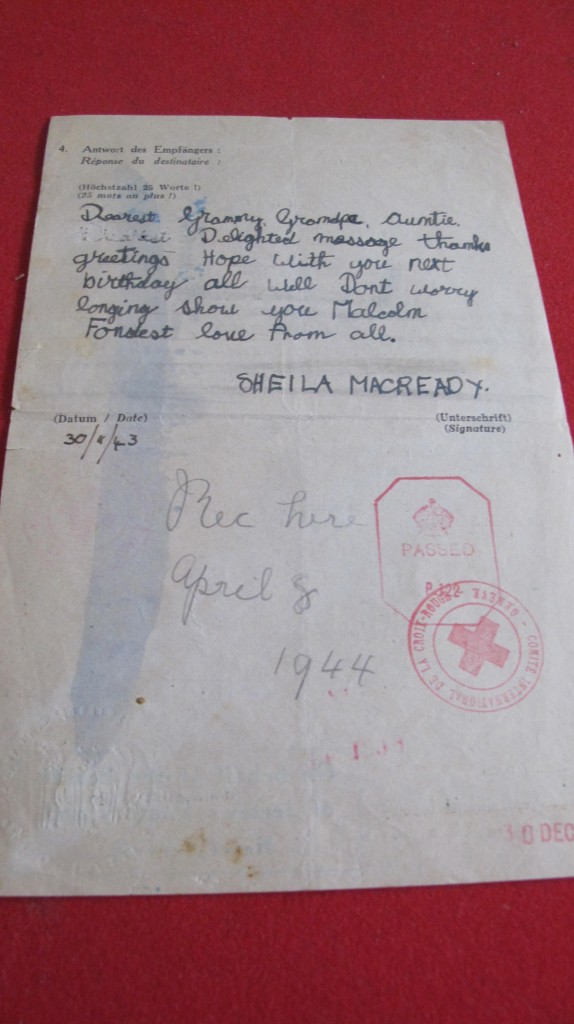 4. Antwort des Empfängers :
Réponse du destinataire :
(Höchstzahl 25 Worte !)
(25 mots au plus !)
Dearest Grammy, Grandpa, Auntie.
Delighted message thanks
greetings Hope with you next
birthday all well Dont worry
longing show you Malcolm
Fondest love from all.
SHEILA MACREADY.
(Datum / Date)
(Unterschrift)
(Signature)
Rec here
PASSED
April 8
P.122
COMITÉ INTERNATIONAL DE LA CROIX-ROUGE - GENÈVE -
1944
30 DEC